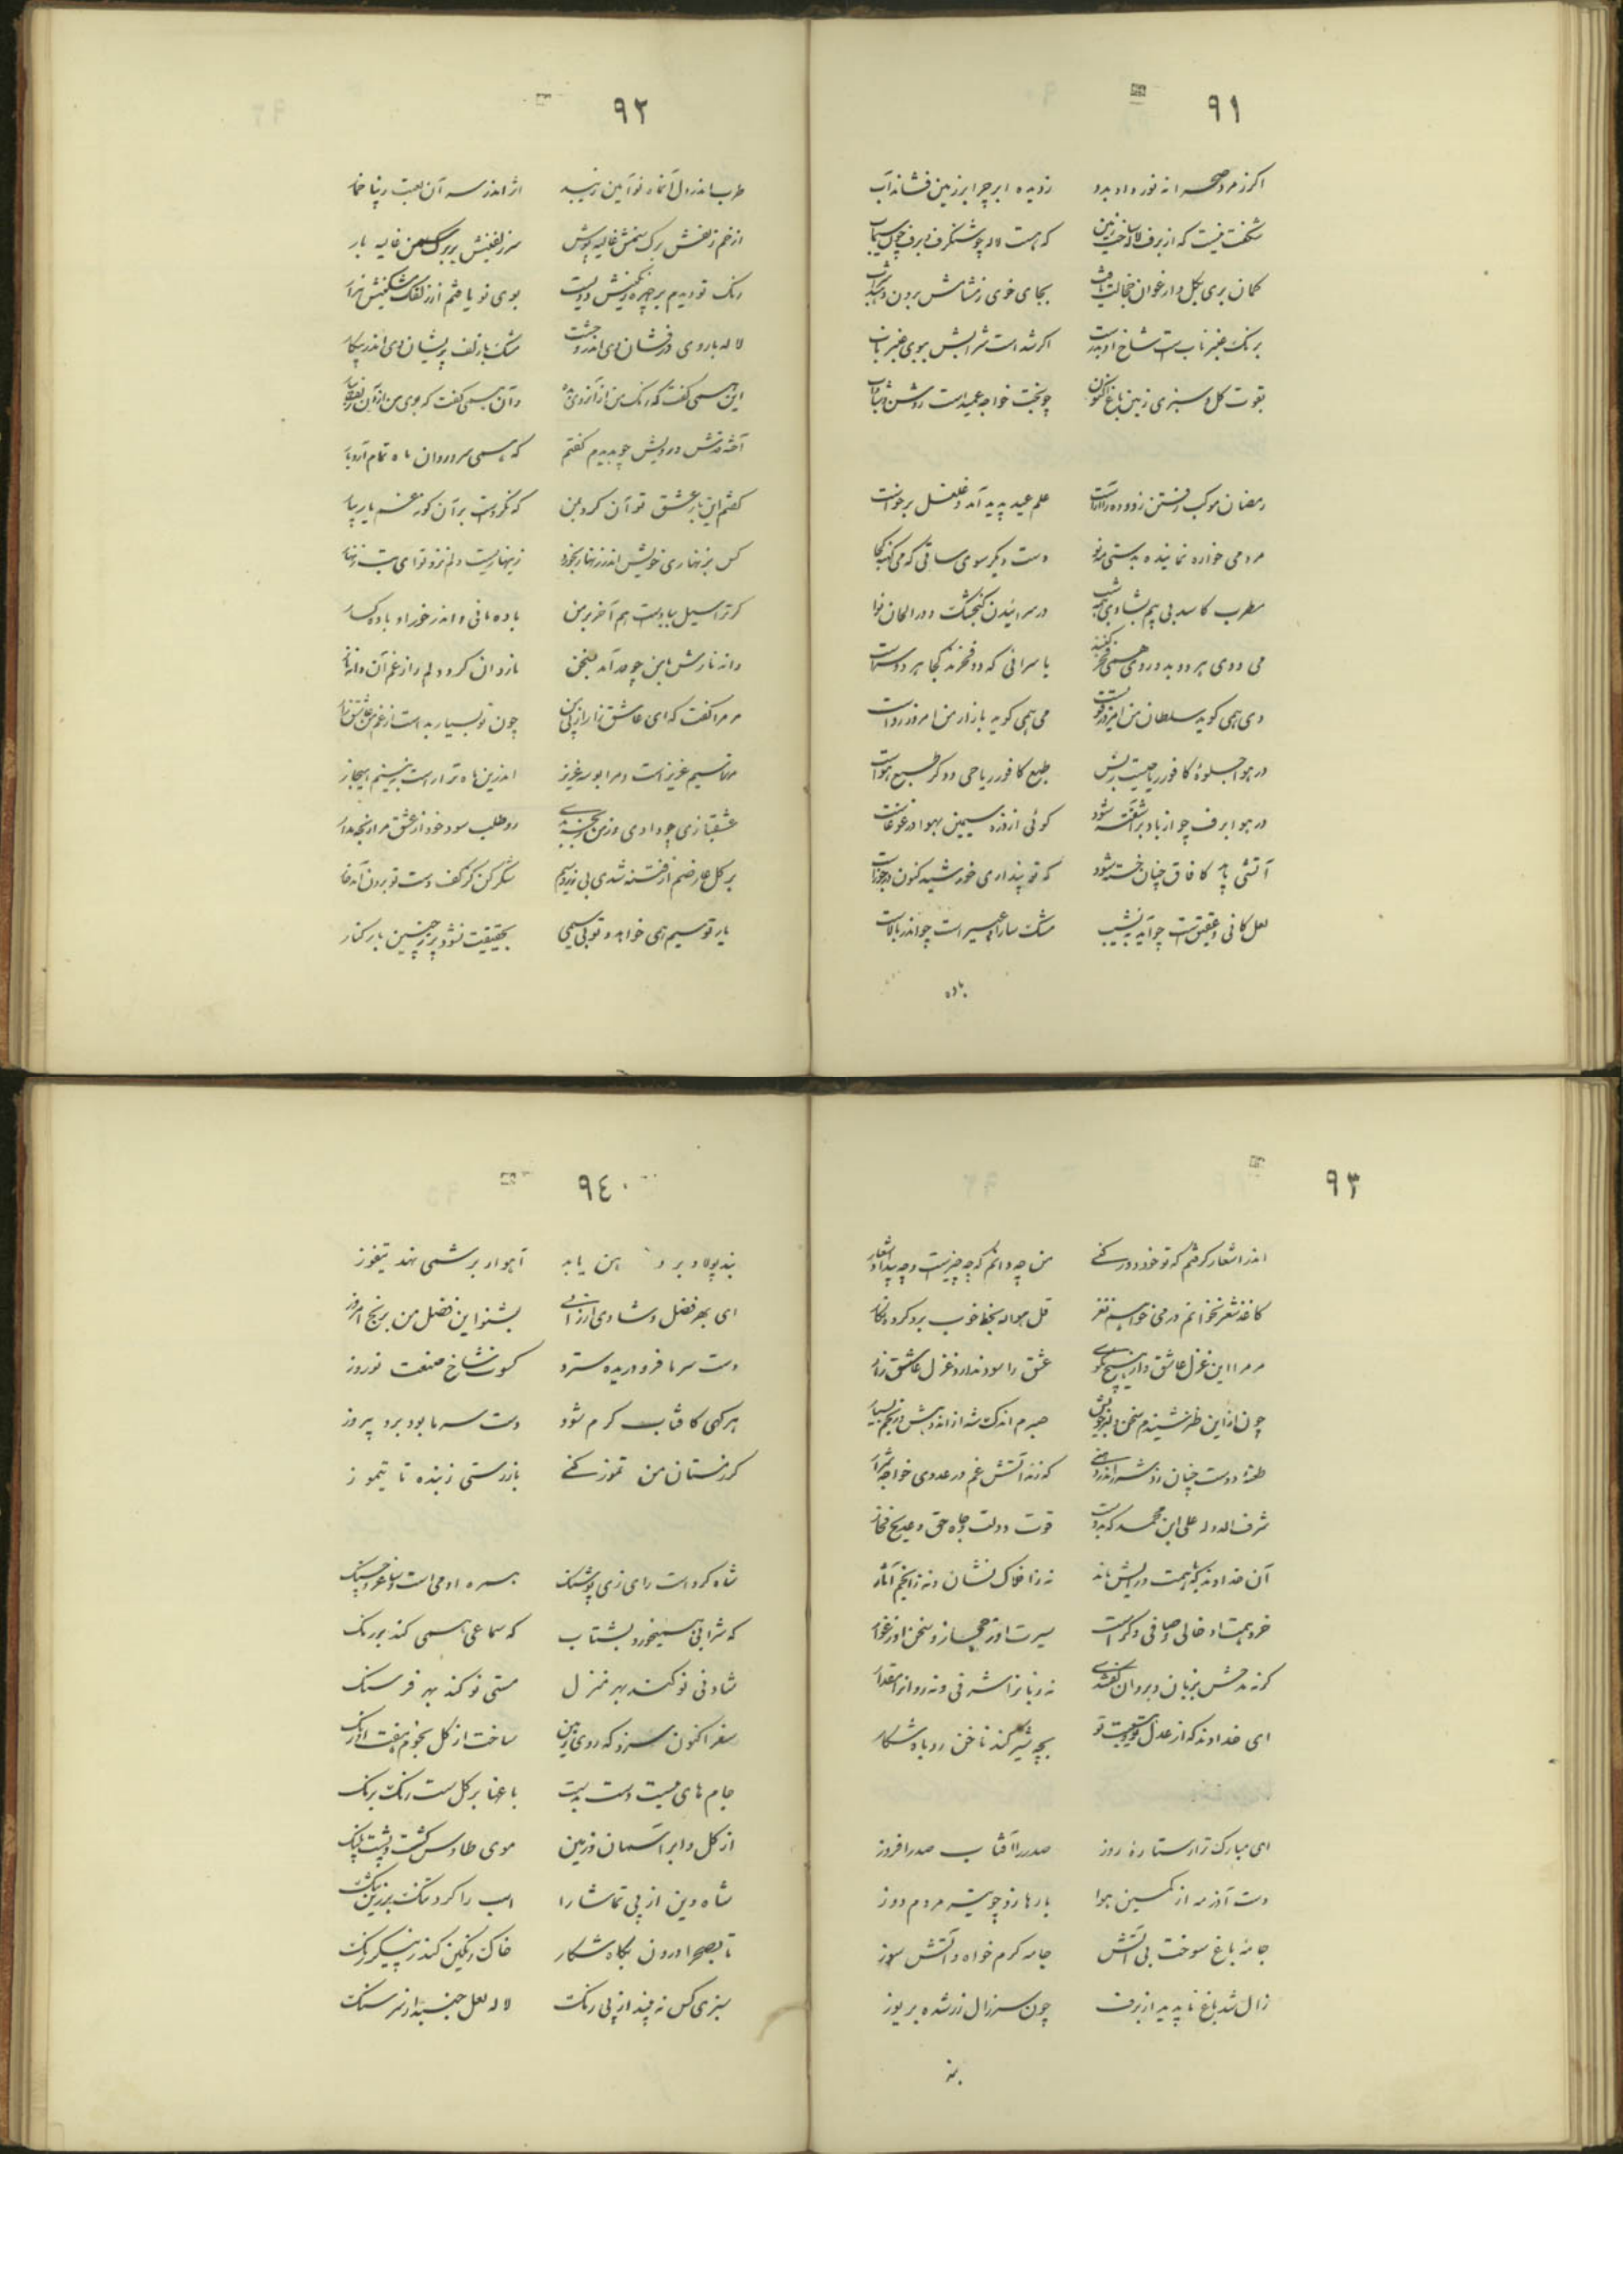 ٩١
اکر زمرد صحرا نه نور داد بدو زدیده ابر چرا بر زمین فشاند آب
شکفت نیست که از برف لاله ساخت زمین که هست لاله چو شنکرف و برف چون سیماب
کمان بری بکل و ارغوان خجالت بجای خوی زمشامش برون
برنک عنبر ناب است شاخ او بدرست اکر شد است شرابش ببوی عنبر ناب
بقوت کل و سبزی زمین باغ اکنون چو بخت خواجه عمید است روشن و شاداب
رمضان موکب رفتن زره دور آراست علم عید پدید آمد و غلغل برخواست
مرد می خواره نماینده بدستی مه نو دست دیکر سوی ساقی که می کهنه کجا
مطرب کاسد بی بیم بشادی همه شب در سرائیدن کنجشک و در الحان نوا
می و دی هر دو بدو روی همی فخر کنند با سرائی که دو فخرند کجا هر دو
دی همی کوید سلطان من امروز قویست می همی کوید بازار من امروز رواست
در هوا جلوهٔ کافور ریاحیست ز برف طبع کافور ریاحی دو کر طبع هواست
در هوا برف چو از باد برآشفته شود کوئی از ذره سیمین بهوا در غوغاست
آتشی باید کافاق چنان خسته شود که تو پنداری خورشید کنون در جوزاست
لعل کانی و عقیقست چو آید بنشیب مشک سارا و عبیر است چو اندر بالاست
باده
٩٢
طرب اندر دل آن ماه نو آئین زنبید اثر اندر سر آن لعبت زیبا خمار
از خم زلفش برک سمنش غالیه پوش سر زلفینش بر برک سمن غالیه بار
رنک نو دیدم بر چهره رنکینش دویست بوی نو یافتم از زلفک مشکینش هزار
لاله با روی درفشان وی اندر وحشت مشک با زلف پریشان وی اندر پیکار
این همی کفت که رنک من از آن روی وان همی کفت که بوی من از آن زلف بیار
آخته قدش و رویش چو بدیدم کفتم که همی سرو روان ماه تمام آرد بار
کفتم این بار عشق تو آن کرد بمن که نکردست بر آن کونه غم یار بیار
کس بزنهاری خویش اندر زنهار نخورد زینهاریست دلم نزد تو ای بت زنهار
کر ترا سیل بباد ست هم آخر بر من باده مانی و اندر خور او باده کسار
دانه نارش با من چو در آمد بسخن ناردان کرد دلم را ز غم آن دانه نار
مر مرا کفت که ای عاشق زار از پی من چون تو بسیار بد است از غم من عاشق زار
مر ترا سیم عزیز است و مرا بوسه عزیز اندرین ماه ترا راست نه بینم هنجار
عشقبازی چو ندادی درمی بخت بدی رو طلب سود خود از عشق مرا رنجه مدار
بر کل عارضم از فتنه شدی بی زر و سیم شکر کن کز کف دست تو برون آمد خار
یار تو سیم همی خواهد و تو بی سیمی بحقیقت نشود بر چنین یار کنار
٩٣
اندر اشعار کرفتم که تو خود دور کنی من چه دانم که چه چیزیست و چه پیدا و اشعار
کاغذ شعر نخوانم درمی خواهم نغز قل هو الله بخط خوب برو کرده نکار
مر مرا این غزل عاشق وار هیچ مکوی عشق را سود ندارد غزل عاشق زار
چون از این طرز شنیدم سخن دلبر خویش صبرم اندک شد از اندیشه و رنجم بسیار
طعنهٔ دوست چنان زد شرر اندر دل من که زند آتش غم در عدوی خواجه شرار
شرف الدوله علی ابن محمد که بدوست قوت دولت و جاه حق و مدیح فخار
آن خداوند که با همت و رایش ماند نه ز افلاک نشان و نه ز انجم آثار
خرد همت او خالی و صافی و کراست سیرت او ز مجاز و سخن او ز عوار
کر نه مدحش بزبان و بروان کفتندی نه زبانرا شرفی و نه روانرا مقدار
ای خداوند که از عدل تو و هیبت تو بچه شیر کند ناخن روباه شکار
ای مبارک ترا ستارهٔ روز صدر را آفتاب صدر افروز
دست آذر مه از کمین هوا بار ها زد چو تیر مردم دوز
جامه باغ سوخت بی آتش جامه کرم خواه و آتش سوز
زال شد باغ ناپدید از برف چون سر زال زر شده بر یوز
بند
٩٤
بند پولاد بر د آهن پایه آهوار بر شمی نهد تیغوز
ای بهر فضل و شادی ارزانی بشنو این فضل من برنج امروز
دست سرما فرو دریده سترد کسوت شاخ صنعت نوروز
هر کهی کافتاب کرم شود دست سرما بود برو پیروز
کر زمستان من تموز کنی باز رستی زبنده تا بتموز
شاه کرد است رای زی پوشنک همره او می است و ساغر و چنک
که شرابی همیخورد بشتاب که سماعی همی کند بدرنک
شادئی نو کند بهر منزل مستی نو کند بهر فرسنک
سفر اکنون سزد که روی زمین ساخت از کل بخوم هفت اورنک
جام های میست دست بدست باغها بر کل ست رنک برنک
از کل و ابر آسمان و زمین موی طاوس کشت و پشت پلنک
شاه دین از پی تماشا را اسب را کرد تنک بر زین تنک
تا بصحرا درون بکاه شکار خاک رنکین کند ز پیکر و رنک
سبزی کس نه چیند از پی رنک لاله لعل جنبد از سر سنک